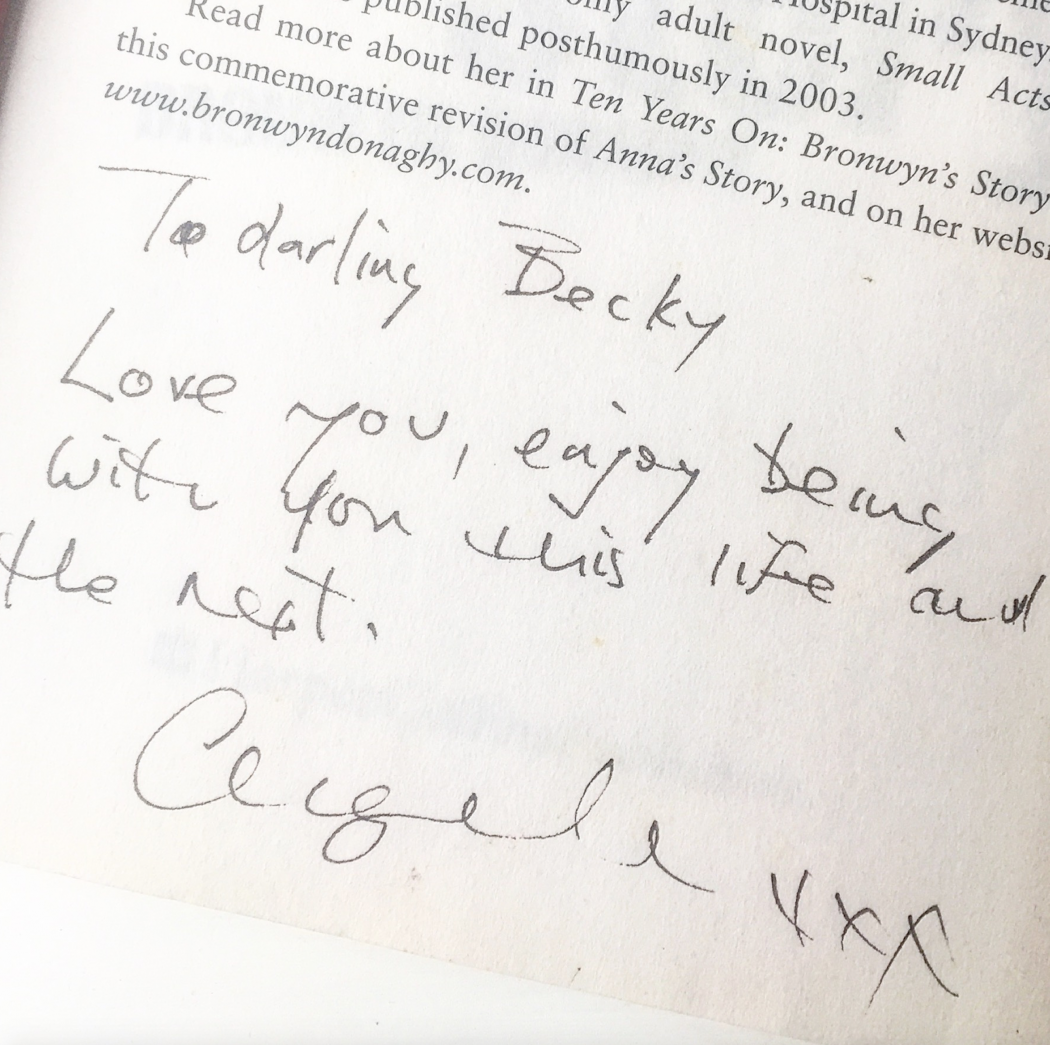 ospital in Sydney.
adult novel, Small Acts
published posthumously in 2003.
Read more about her in Ten Years On: Bronwyn's Story
this commemorative revision of Anna's Story, and on her websi
www.bronwyndonaghy.com.
To darling Becky
Love you, enjoy being
with you this life and
the next.
Angela xxx